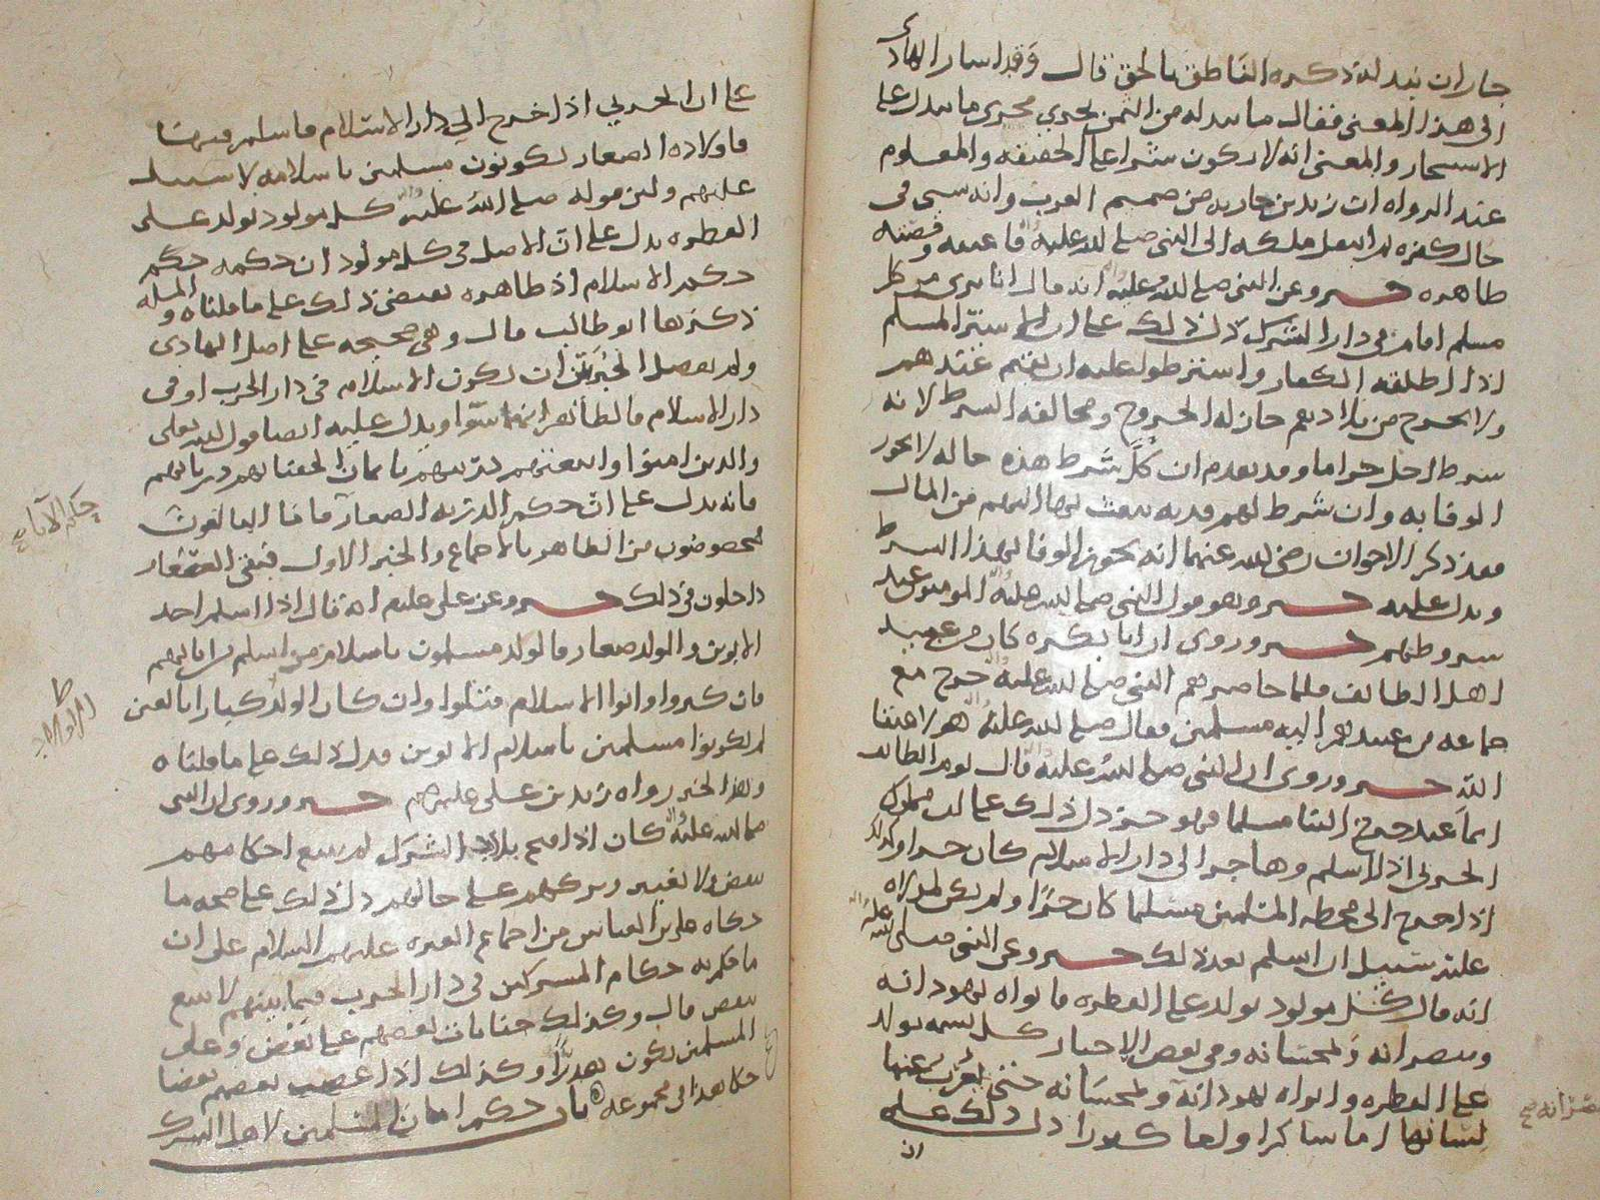 جاز ان يبدله ذكره الناطق بالحق قال وقد اشار الهادي
الى هذا المعنى فقال ما يبدله من الثمن يجري مجرى ما يبدل على
الاستيجار والمعنى انه لا يكون شرا على الحقيقه والمعلوم
عند الرواه ان زيد بن حارثه من صميم العرب وانه سبي في
حال كفره ثم انتقل ملكه الى النبي صلى الله عليه فاعتقه وقصته
ظاهره خبر وعن النبي صلى الله عليه انه قال انا بري من كل
مسلم اقام في دار الشرك دل ذلك على ان الاسير المسلم
اذا اطلقه الكفار واشترطوا عليه ان يقيم عندهم
ولا يخرج من بلادهم جاز له الخروج ومخالفه الشرط لانه
شرط احل حراما وقد تقدم ان كل شرط هذه حاله لا يجوز
الوفا به وان شرط لهم فديه يبعث بها اليهم من المال
فقد ذكر الاخوان رضي الله عنهما انه يجوز الوفا بهذا الشرط
ويدل عليه خبر وهو قول النبي صلى الله عليه المومنون عند
شروطهم خبر وروي ان ابا بكره كان من عبيد
اهل الطائف فلما حاصرهم النبي صلى الله عليه خرج مع
جماعه من عبيدهم اليه مسلمين فقال صلى الله عليه هولا عتقا
الله خبر وروي ان النبي صلى الله عليه قال يوم الطائف
ايما عبد خرج الينا مسلما فهو حر دل ذلك على ان مملوك
الحربي اذا اسلم وهاجر الى دار الاسلام كان حرا وكذلك
اذا خرج الى محطه المسلمين مسلما كان حرا ولم يكن لمولاه
عليه سبيل ان اسلم بعد ذلك خبر وعن النبي صلى الله عليه
انه قال كل مولود يولد على الفطره فابواه يهودانه
وينصرانه ويمجسانه وفي بعض الاخبار كل نسمه تولد
على الفطره وابواه يهودانه ويمجسانه حتى يعرب عنها
لسانها اما شاكرا واما كفورا دل ذلك على
ان
ينصرانه صح
على ان الحربي اذا خرج الى دار الاسلام فاسلم فيها
فاولاده الصغار يكونون مسلمين باسلامه لا سبيل
عليهم ولان قوله صلى الله عليه كل مولود يولد على
الفطره يدل على ان الاصل في كل مولود ان حكمه حكم
حكم الاسلام اذ ظاهره يقتضي ذلك على ما قلناه والمسله
ذكرها ابو طالب قال وهي صحيحه على اصل الهادي
ولم يفصل الخبر بين ان يكون الاسلام في دار الحرب او في
دار الاسلام فالظاهر انهما سوا ويدل عليه ايضا قول الله تعلى
والذين امنوا واتبعتهم ذريتهم بايمان الحقنا بهم ذرياتهم
فانه يدل على ان حكم الذريه الصغار فاما البالغون
حكم الآباء صح
مخصوصون من الظاهر بالاجماع والخبر الاول فبقي الصغار
داخلون في ذلك خبر وعن علي عليلم انه قال اذا اسلم احد
الابوين والولد صغار فالولد مسلمون باسلام من اسلم من ابائهم
فان كبروا وابوا الاسلام قتلوا وان كان الولد كبارا بالغين
لم يكونوا مسلمين باسلام الابوين فدل ذلك على ما قلناه
وهذا الخبر رواه زيد بن علي عليهم خبر وروي ان النبي
صلى الله عليه كان اذا فتح بلاد الشرك لم يتبع احكامهم
بنقض ولا تغيير وتركهم على حالهم دل ذلك على صحه ما
حكاه علي بن العباس من اجماع العتره عليهم السلام على ان
ما حكم به حكام المشركين في دار الحرب فيما بينهم لا يتبع
بنقض قال وكذلك جنايات بعضهم على بعض وعلى
المسلمين تكون هدرا وكذلك اذا غصب بعضهم بعضا
حكا هذا في مجموعه باب حكم امان المسلمين لاهل الشرك